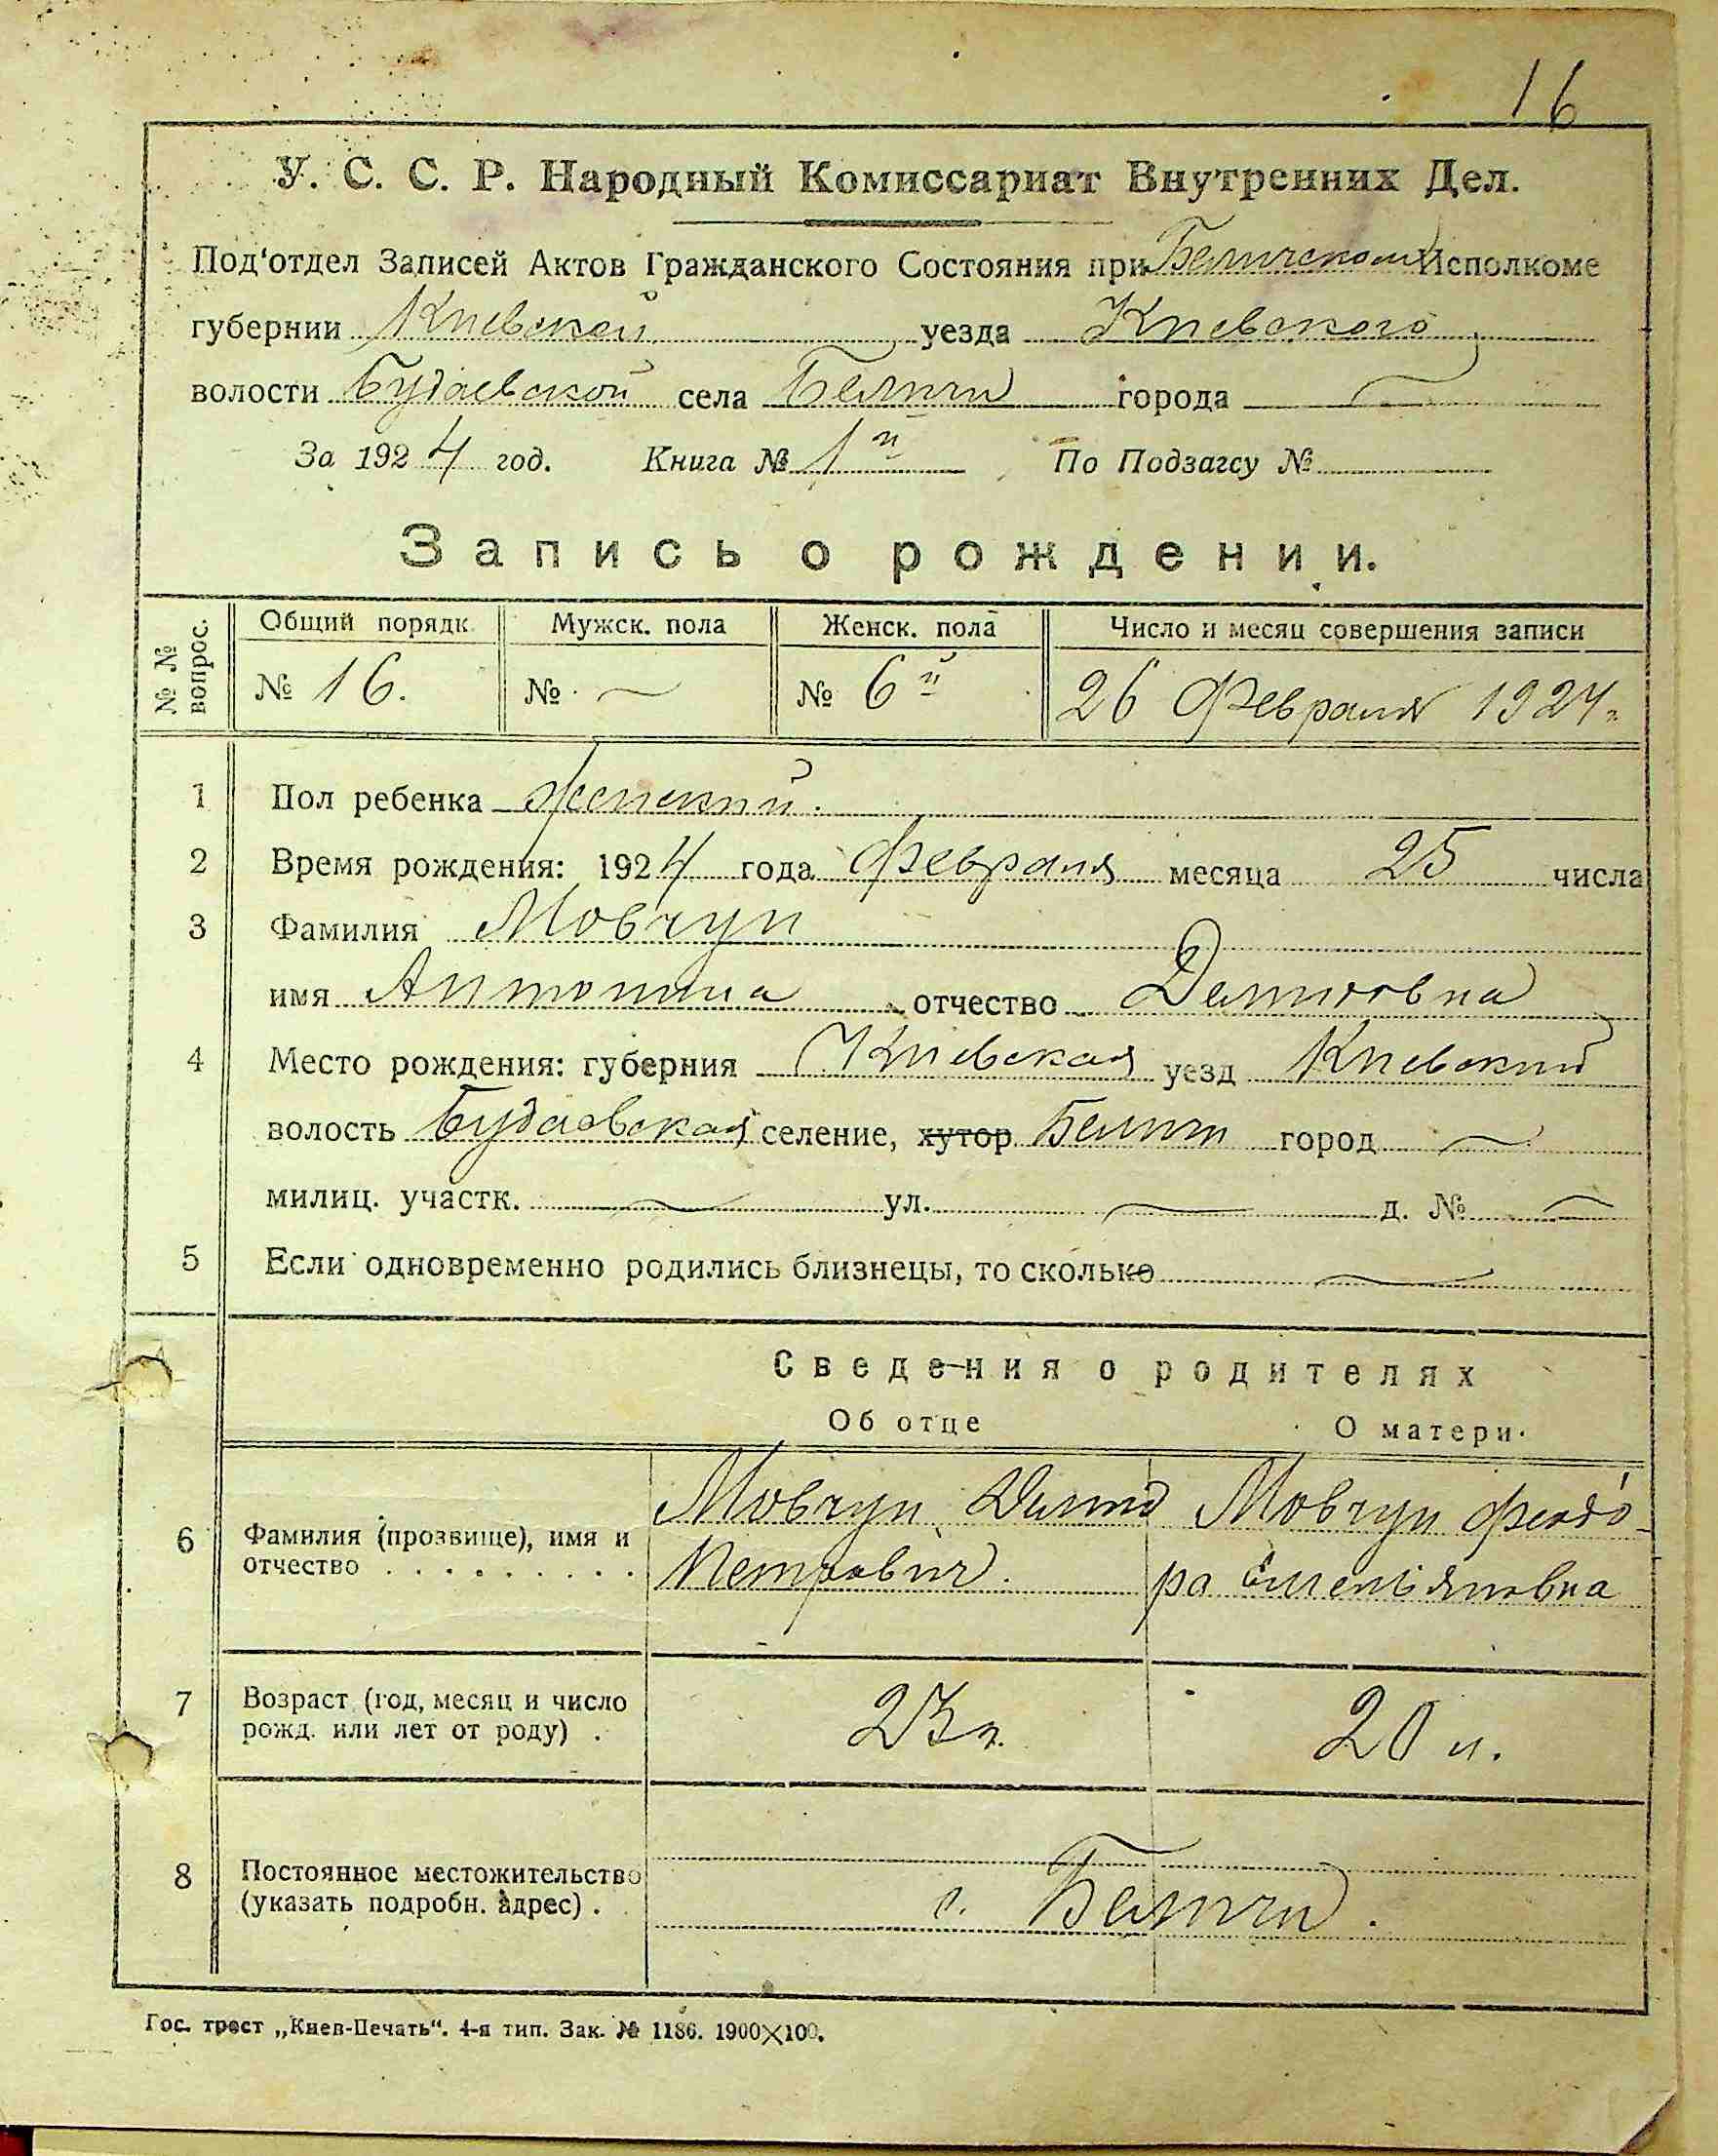 16
У. С. С. Р. Народный Комиссариат Внутренних Дел.
Под'отдел Записей Актов Гражданского Состояния при Беличском Исполкоме
губернии Киевской уезда Киевского
волости Будаевской села Беличи города —
За 1924 год. Книга № 1й По Подзагсу №
Запись о рождении.
№ № вопрос. Общий порядк. Мужск. пола Женск. пола Число и месяц совершения записи
№ 16. № — № 6й 26 Февраля 1924 г.
1 Пол ребенка женский.
2 Время рождения: 1924 года Февраля месяца 25 числа
3 Фамилия Мовчун
имя Антонина отчество Демидовна
4 Место рождения: губерния Киевская уезд Киевский
волость Будаевская селение, хутор Беличи город —
милиц. участк. — ул. — д. № —
5 Если одновременно родились близнецы, то сколько —
Сведения о родителях
Об отце О матери.
6 Фамилия (прозвище), имя и отчество Мовчун Демид Петрович. Мовчун Федора Емельяновна
7 Возраст (год, месяц и число рожд. или лет от роду) . 23 л. 20 л.
8 Постоянное местожительство (указать подробн. адрес) . с. Беличи.
Гос. трест „Киев-Печать“. 4-я тип. Зак. № 1186. 1900×100.